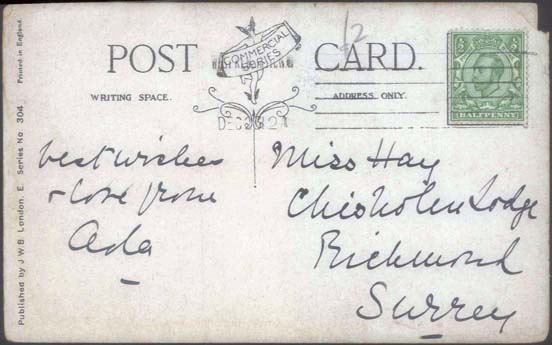 POST CARD.
COMMERCIAL
SERIES
WRITING SPACE.
ADDRESS ONLY.
HALFPENNY
12
best wishes
& love from
Ada
Miss Hay
Chisholm Lodge
Richmond
Surrey
Published by J.W.B. London, E. Series No 304 Printed in England.